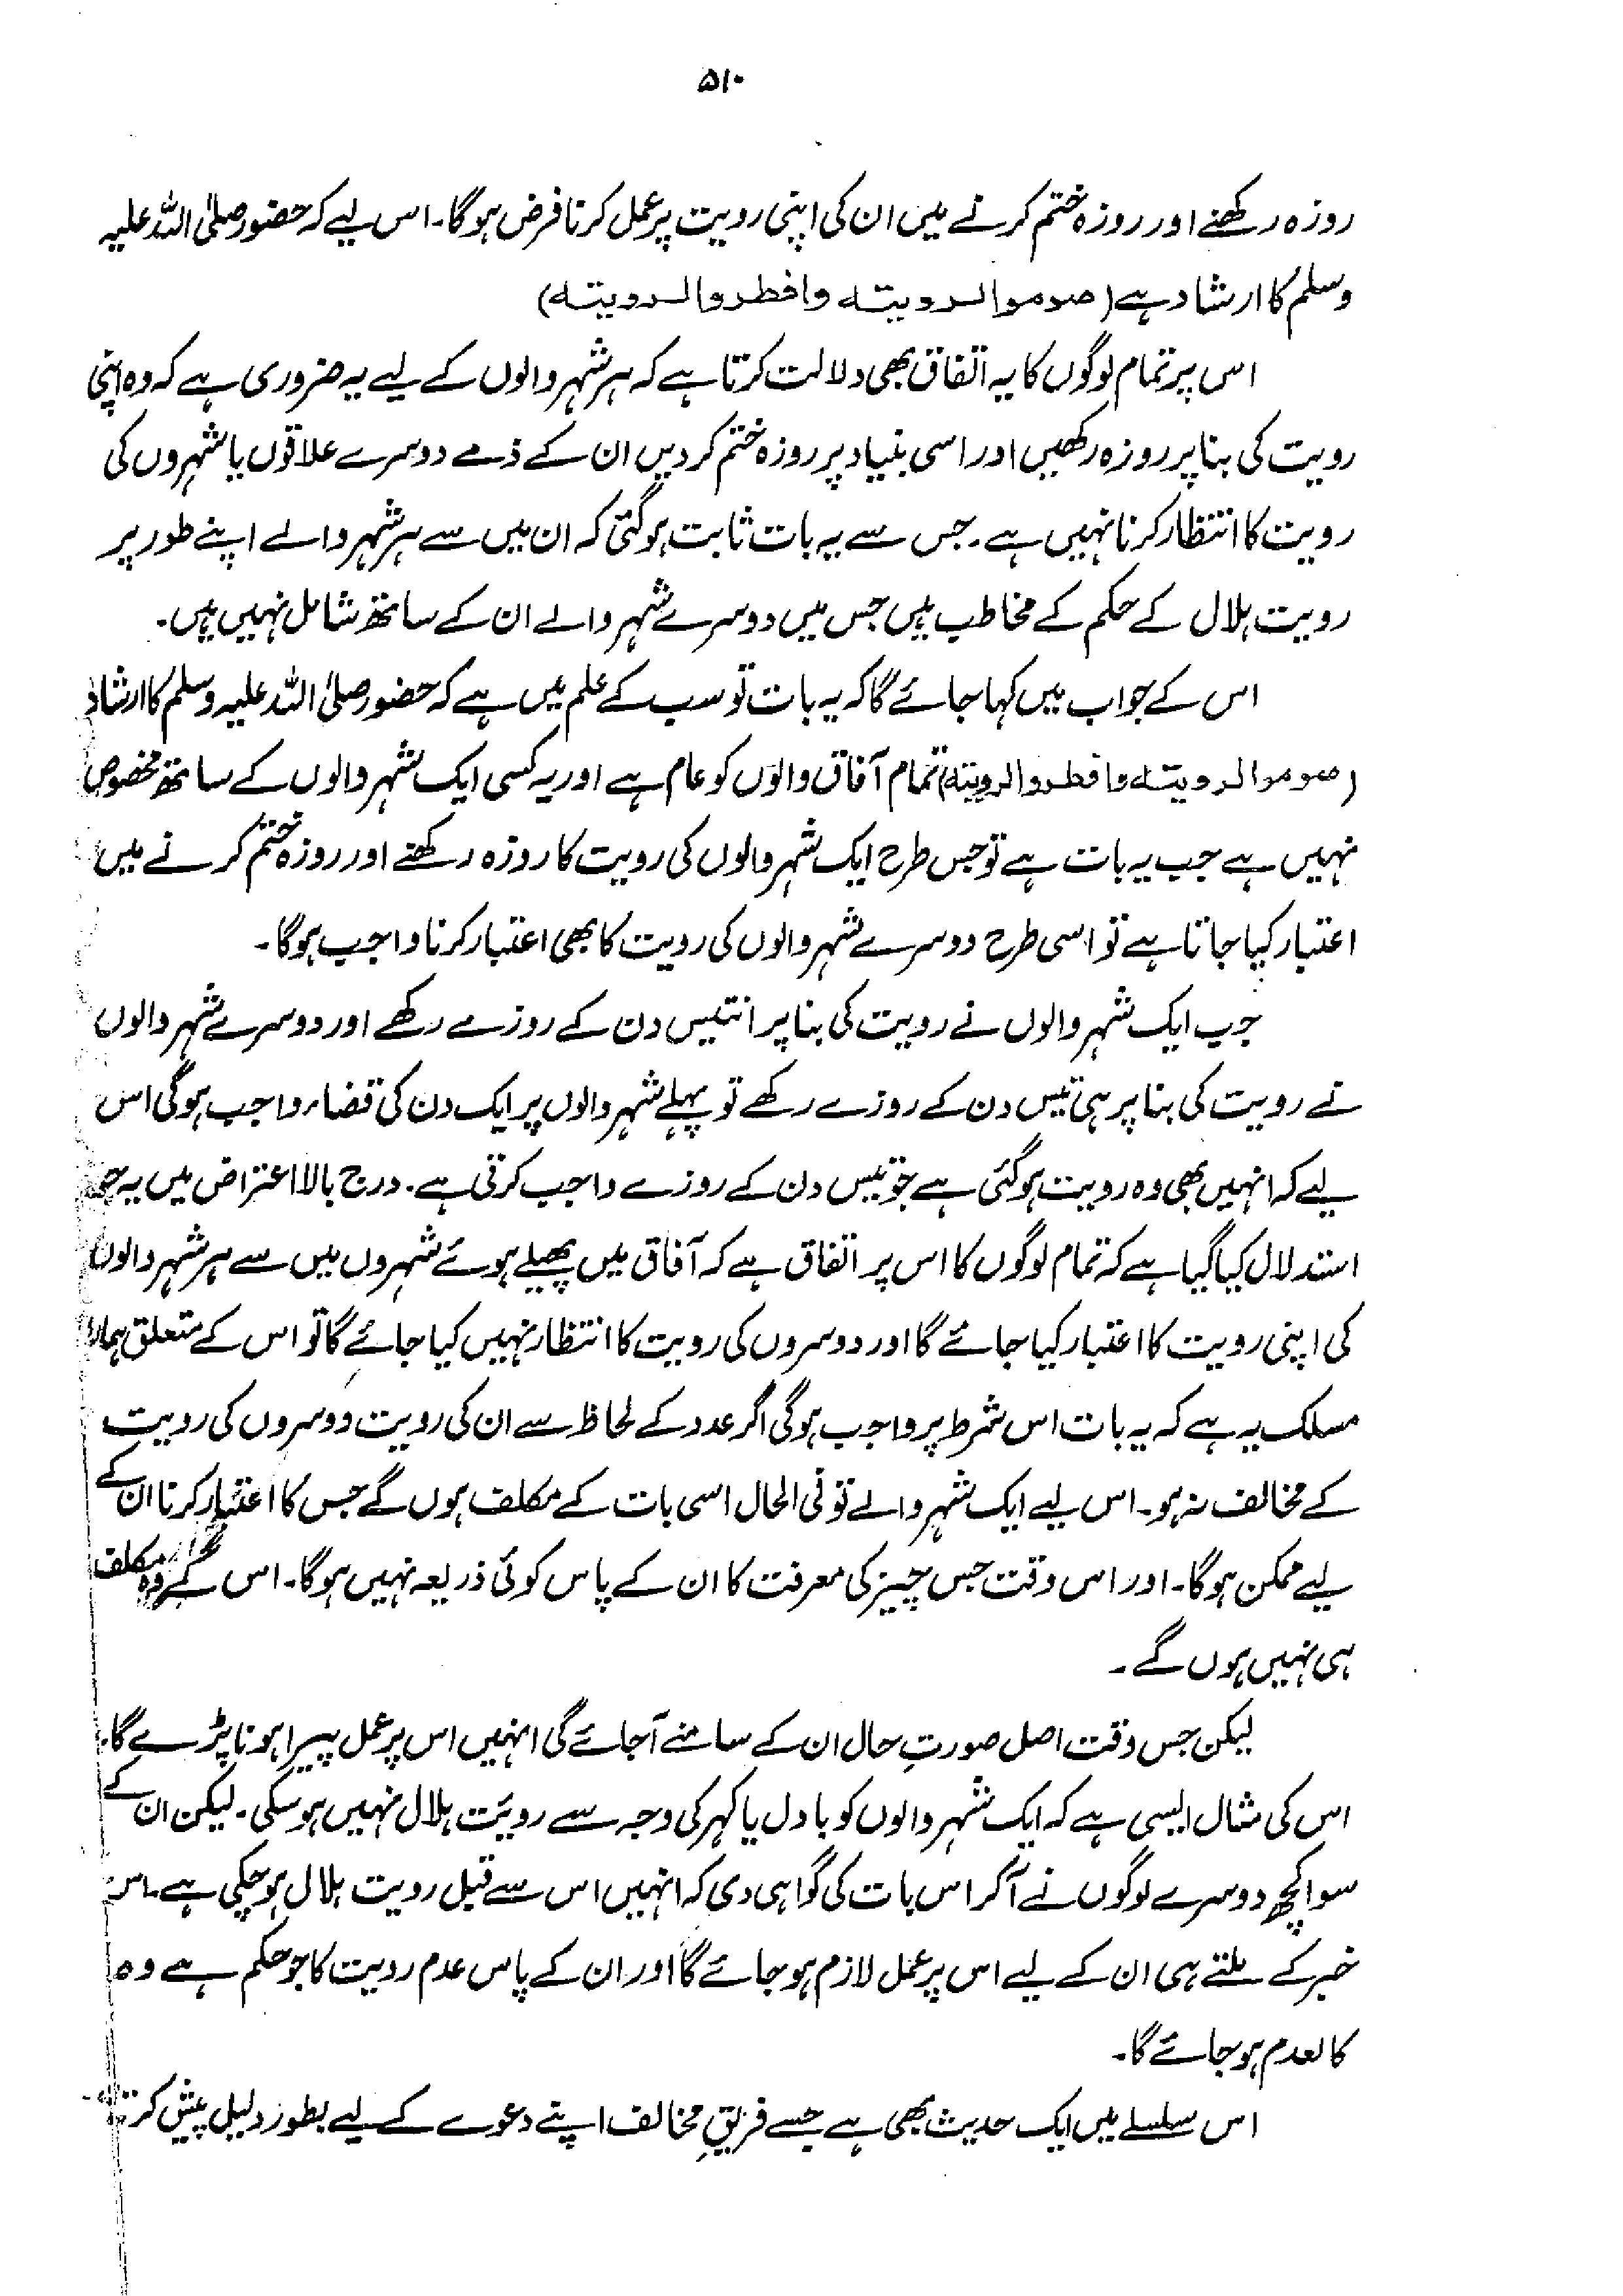 ۵۱۰
روزہ رکھنے اور روزہ ختم کرنے میں ان کی اپنی رویت پر عمل کرنا فرض ہوگا۔ اس لیے کہ حضور صلی اللہ علیہ
وسلم کا ارشاد ہے (صوموالرویتہ وافطروالرویتہ)
اس پر تمام لوگوں کا یہ اتفاق بھی دلالت کرتا ہے کہ ہر شہر والوں کے لیے یہ ضروری ہے کہ وہ اپنی
رویت کی بنا پر روزہ رکھیں اور اسی بنیاد پر روزہ ختم کر دیں ان کے ذمے دوسرے علاقوں یا شہروں کی
رویت کا انتظار کرنا نہیں ہے۔ جس سے یہ بات ثابت ہوگئی کہ ان میں سے ہر شہر والے اپنے طور پر
رویت ہلال کے حکم کے مخاطب ہیں جس میں دوسرے شہر والے ان کے ساتھ شامل نہیں ہیں۔
اس کے جواب میں کہا جائے گا کہ یہ بات تو سب کے علم میں ہے کہ حضور صلی اللہ علیہ وسلم کا ارشاد
(صوموالرویتہ وافطروالرویتہ) تمام آفاق والوں کو عام ہے اور یہ کسی ایک شہر والوں کے ساتھ مخصوص
نہیں ہے جب یہ بات ہے تو جس طرح ایک شہر والوں کی رویت کا روزہ رکھنے اور روزہ ختم کرنے میں
اعتبار کیا جاتا ہے تو اسی طرح دوسرے شہر والوں کی رویت کا بھی اعتبار کرنا واجب ہوگا۔
جب ایک شہر والوں نے رویت کی بنا پر انتیس دن کے روزے رکھے اور دوسرے شہر والوں
نے رویت کی بنا پر ہی تیس دن کے روزے رکھے تو پہلے شہر والوں پر ایک دن کی قضاء واجب ہوگی اس
لیے کہ انہیں بھی وہ رویت ہوگئی ہے جو تیس دن کے روزے واجب کرتی ہے۔ درج بالا اعتراض میں یہ جو
استدلال کیا گیا ہے کہ تمام لوگوں کا اس پر اتفاق ہے کہ آفاق میں پھیلے ہوئے شہروں میں سے ہر شہر والوں
کی اپنی رویت کا اعتبار کیا جائے گا اور دوسروں کی رویت کا انتظار نہیں کیا جائے گا تو اس کے متعلق ہمارا
مسلک یہ ہے کہ یہ بات اس شرط پر واجب ہوگی اگر عدد کے لحاظ سے ان کی رویت دوسروں کی رویت
کے مخالف نہ ہو۔ اس لیے ایک شہر والے تو فی الحال اسی بات کے مکلف ہوں گے جس کا اعتبار کرنا ان کے
لیے ممکن ہوگا۔ اور اس وقت جس چیز کی معرفت کا ان کے پاس کوئی ذریعہ نہیں ہوگا۔ اس کے وہ مکلف
ہی نہیں ہوں گے۔
لیکن جس وقت اصل صورتِ حال ان کے سامنے آجائے گی انہیں اس پر عمل پیرا ہونا پڑے گا۔
اس کی مثال ایسی ہے کہ ایک شہر والوں کو بادل یا کہر کی وجہ سے رویت ہلال نہیں ہوسکی۔ لیکن ان کے
سوا کچھ دوسرے لوگوں نے آکر اس بات کی گواہی دی کہ انہیں اس سے قبل رویت ہلال ہوچکی ہے۔ اس
خبر کے ملتے ہی ان کے لیے اس پر عمل لازم ہو جائے گا اور ان کے پاس عدم رویت کا جو حکم ہے وہ
کالعدم ہو جائے گا۔
اس سلسلے میں ایک حدیث بھی ہے جسے فریقِ مخالف اپنے دعوے کے لیے بطور دلیل پیش کرتے